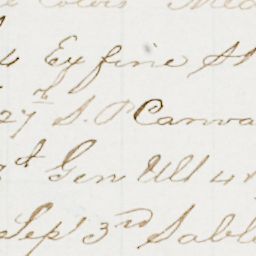 Colors Med
4 Ex fine S
27th S. P Canva
d Gen Ult 4
Sept 3rd Sabl